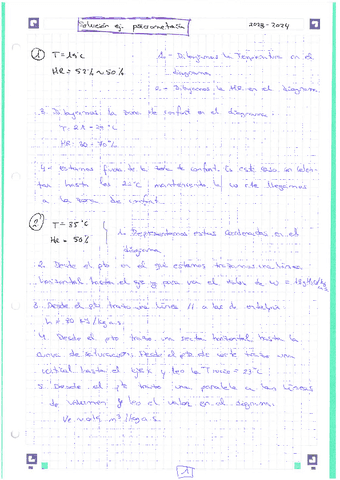 Solución ej. psicrometría 2023-2024
① T = 19°C
HR = 52% ~ 50%
1.- Dibujamos la Temperatura en el
diagrama
2.- Dibujamos la HR en el diagrama
3. Dibujamos la zona de confort en el diagrama.
T:
HR: 30-70%
4.- estamos fuera de la zona de confort. En este caso, con
hasta los 22°C manteniendo la llegamos
a la zona de confort.
② T = 35°C
HR = 50%
1. Representamos estas coordenadas en el
diagrama
2. Desde el pto en el que estamos trazamos una línea
horizontal hasta el eje y para ver el valor de W =
3. Desde el pto trazo una línea // a las de entalpía
4. Desde el pto trazo una recta horizontal hasta la
curva de saturación. Desde el pto de corte trazo una
vertical hasta el eje X y leo la T rocío = 23°C
5. Desde el pto trazo una paralela a las líneas
de volumen y leo el valor en el diagrama.
m³/kg a.s.
1